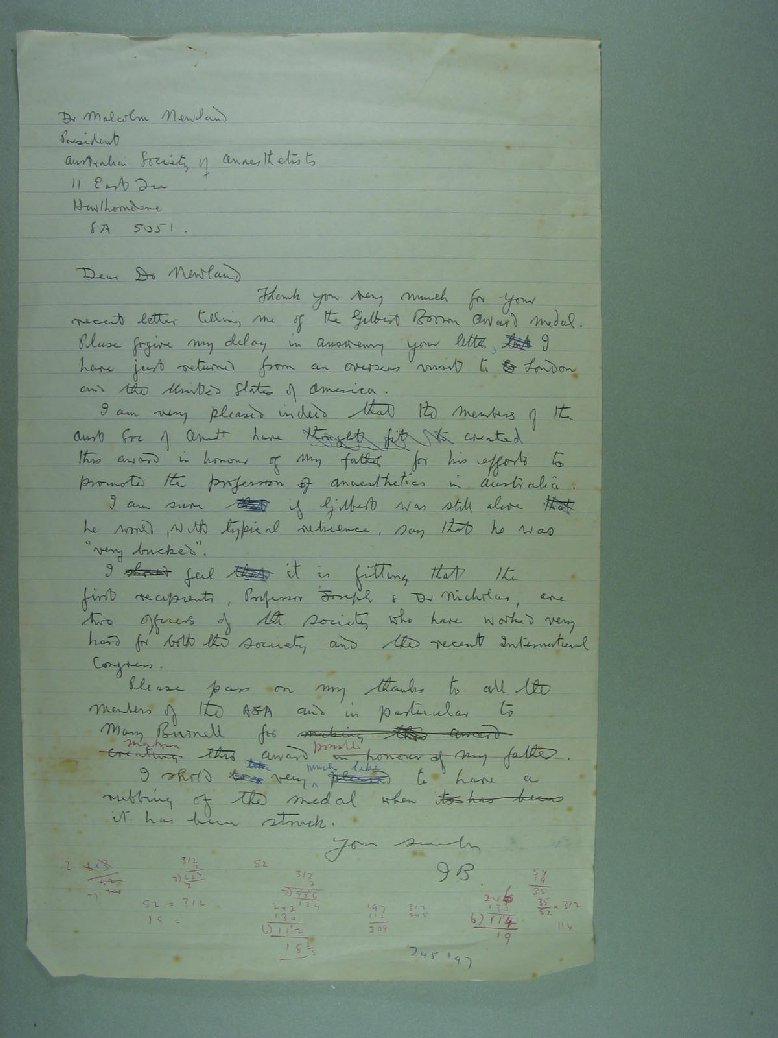 Dr Malcolm Newland
President
Australian Society of Anaesthetists
11 East Tce
Hawthorndene
SA 5051.
Dear Dr Newland
Thank you very much for your
recent letter telling me of the Gilbert Brown award medal.
Please forgive my delay in answering your letter, I
have just returned from an overseas visit to London
and the United States of America.
I am very pleased indeed that the members of the
Aust Soc of Anaest have thought fit to created
this award in honour of my father for his efforts to
promote the profession of anaesthetics in Australia.
I am sure if Gilbert was still alive that
he would, with typical reticence, say that he was
"very bucked".
I should feel that it is fitting that the
first recipients, Professor Joseph & Dr Nicholas, are
two officers of the society who have worked very
hard for both the society and the recent International
Congress.
Please pass on my thanks to all the
members of the ASA and in particular to
Mary Burnell for making this award
creating this award possible in honour of my father.
I shold very much like pleased to have a
rubbing of the medal when it has been
it has been struck.
Your sincerely
JB
52 = 312
52
312
197
245 197
19
114